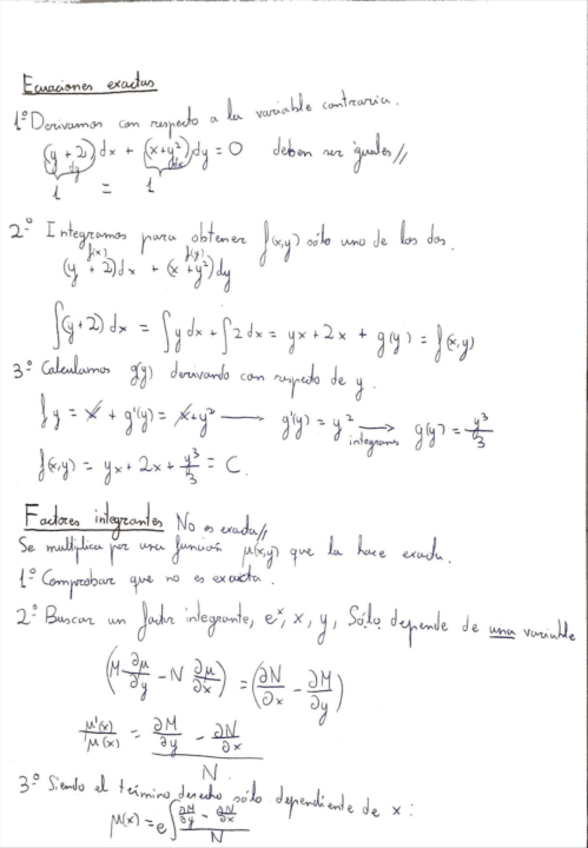 Ecuaciones exactas
1º Derivamos con respecto a la variable contraria.
(y + 2) dx + (x+y²) dy = 0 deben ser iguales //
dy dx
1 = 1
2º Integramos para obtener f(x,y) sólo uno de los dos.
f(x) f(y)
(y + 2) dx + (x + y²) dy
∫(y+2) dx = ∫y dx + ∫2 dx = yx + 2x + g(y) = f(x,y)
3º Calculamos g(y) derivando con respecto de y.
fy = x + g'(y) = x+y² → g'(y) = y² → integramos g(y) = y³/3
f(x,y) = yx + 2x + y³/3 = C.
Factores integrantes No es exacta //
Se multiplica por una función μ(x,y) que la hace exacta.
1º Comprobar que no es exacta.
2º Buscar un factor integrante, eˣ, x, y, Sólo depende de una variable
(M ∂μ/∂y - N ∂μ/∂x) = (∂N/∂x - ∂M/∂y)
μ'(x)/μ(x) = (∂M/∂y - ∂N/∂x)/N
3º Siendo el término derecho sólo dependiente de x:
μ(x) = e^∫(∂M/∂y - ∂N/∂x)/N